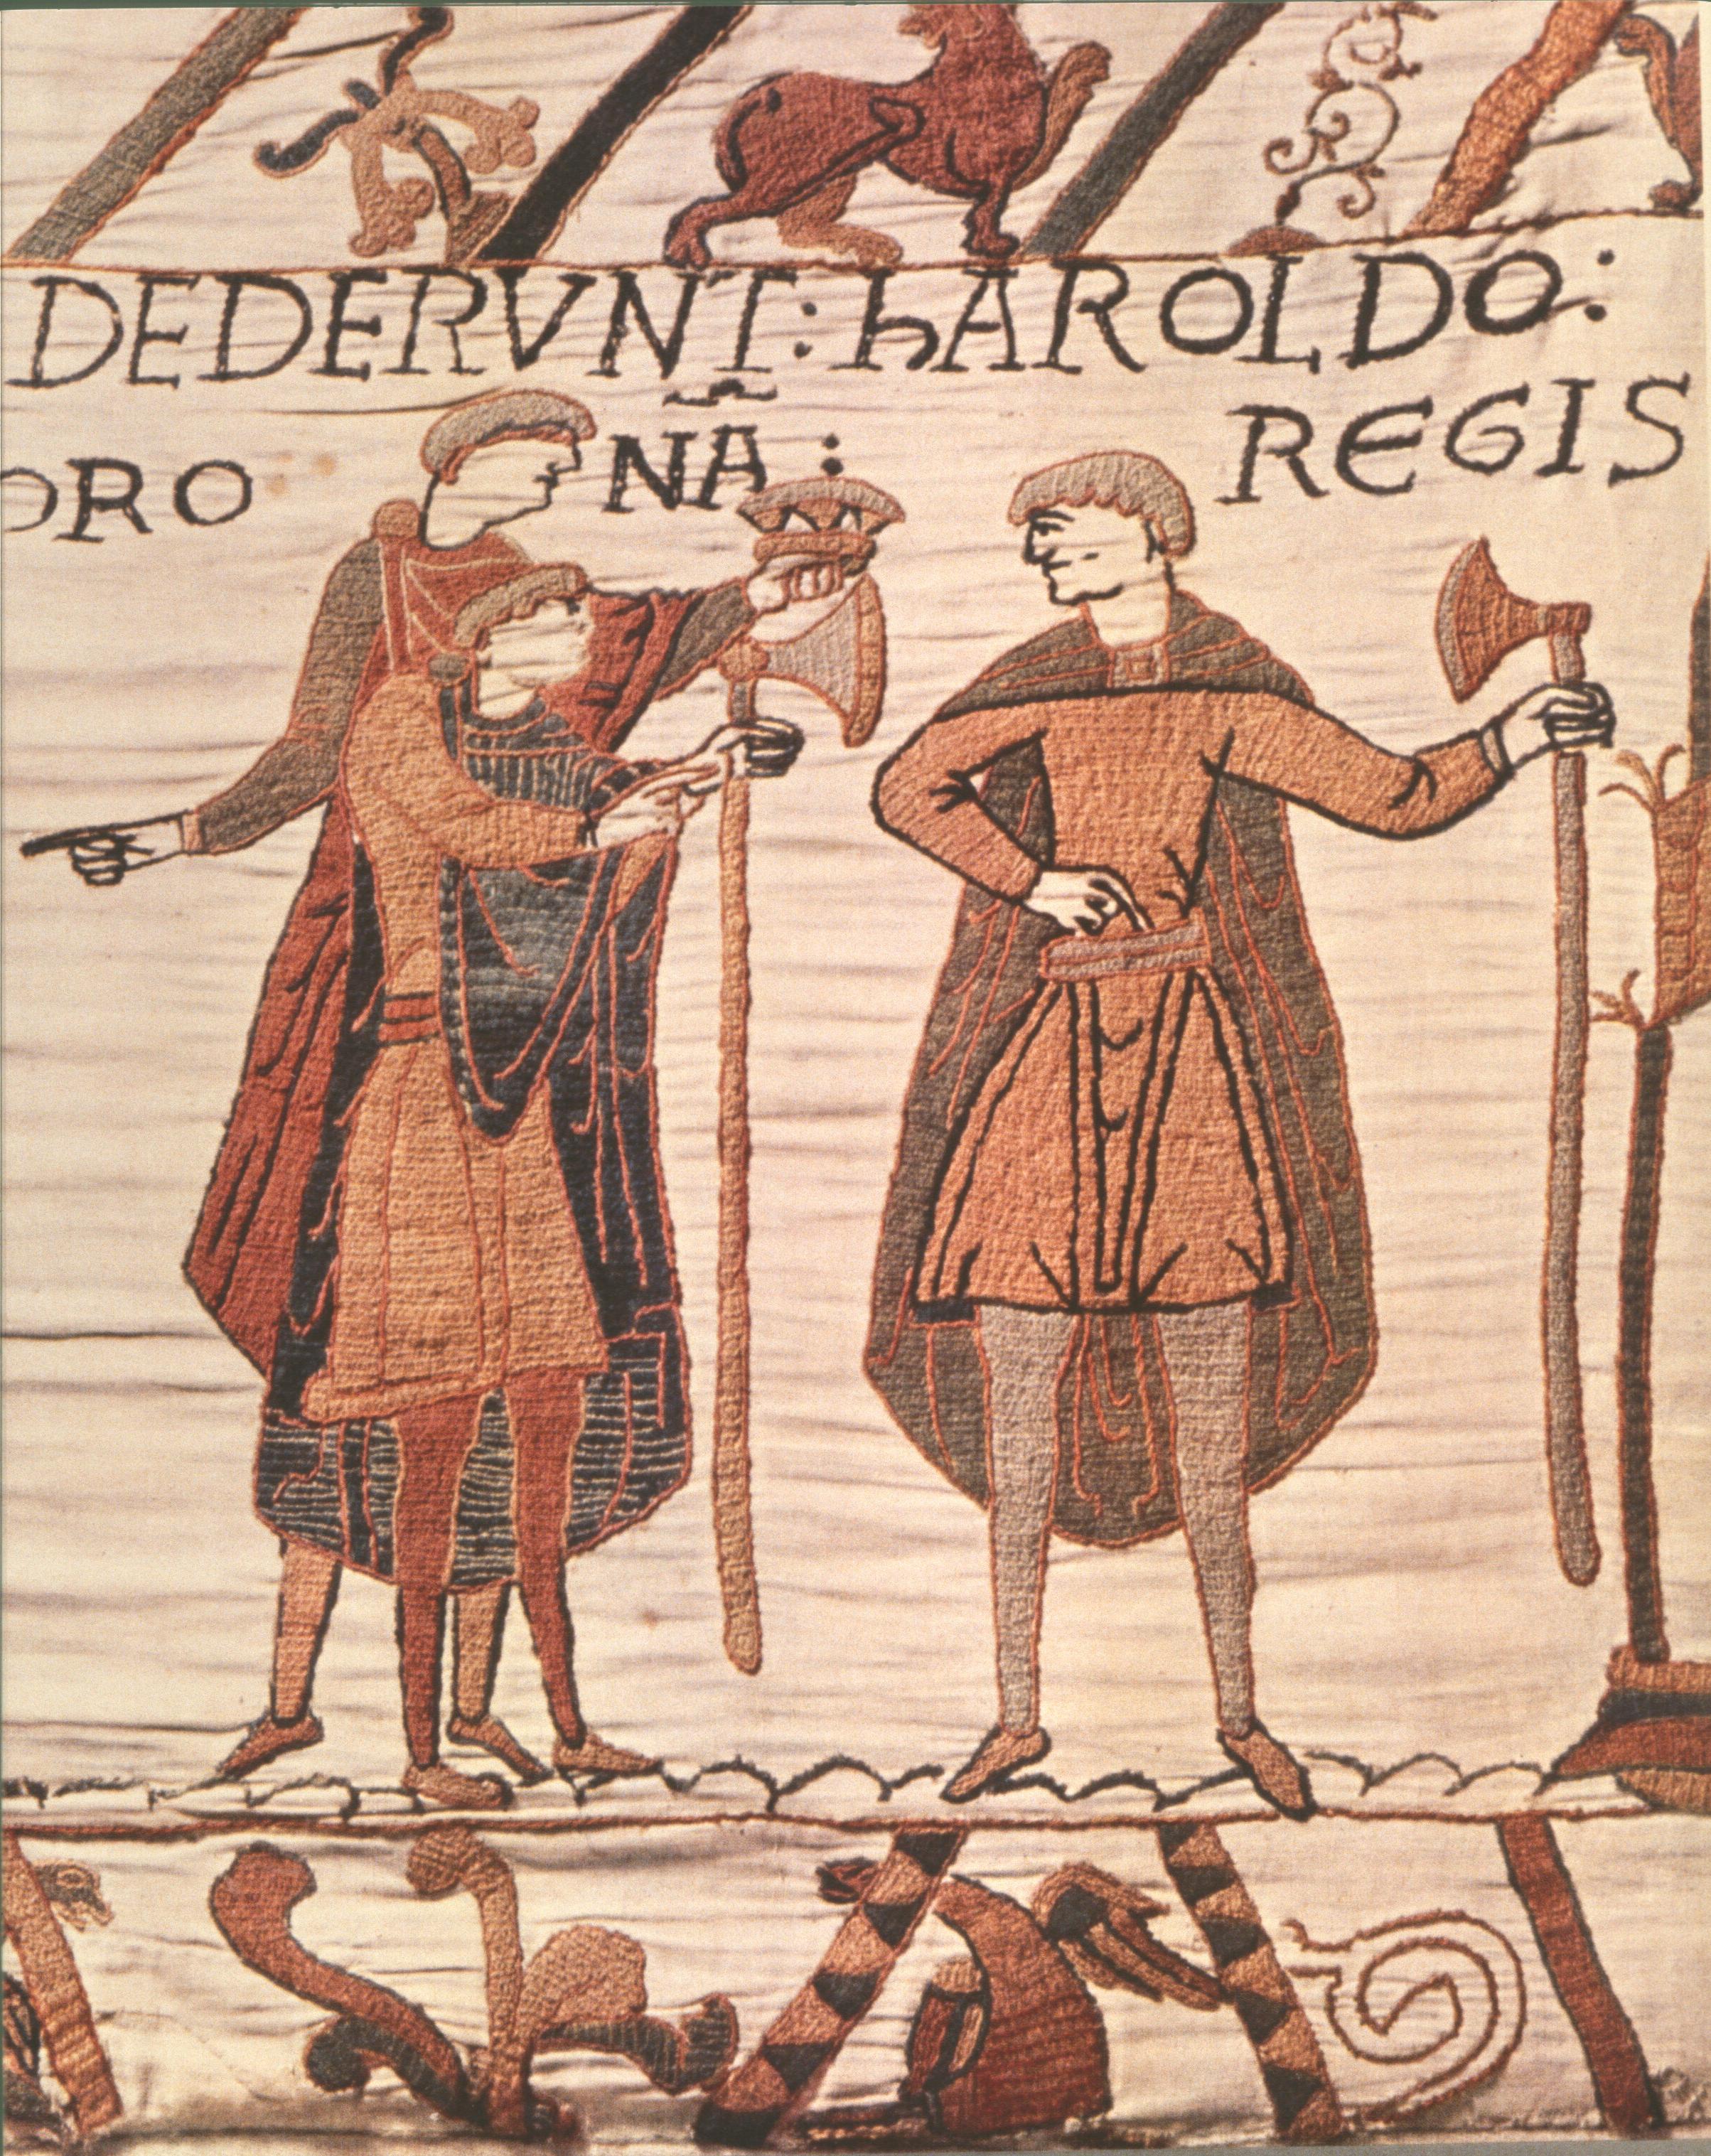 DEDERVNT: hAROLDO:
ORO NĀ: REGIS